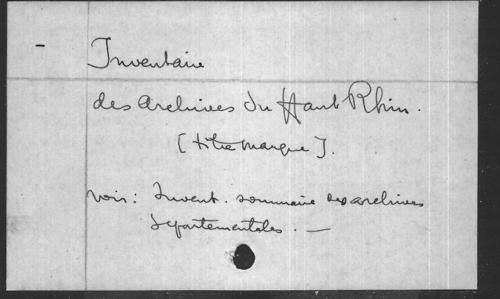 – Inventaire
des Archives du Haut Rhin.
[titre manque].
voir: Invent. sommaire des archives
départementales. —